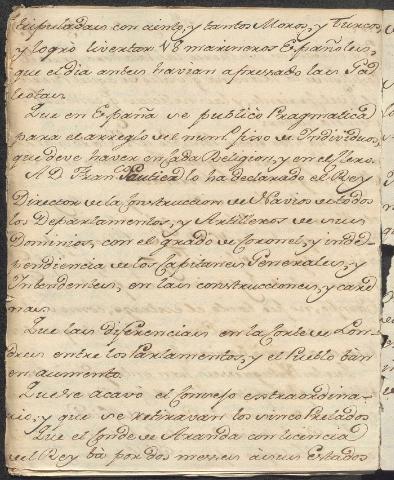 tripuladas con ciento, y tantos Moros, y Turcos,
y logró livertar 48 marineros Españoles,
que el dia antes havian apressado las Gal
leotas.
Que en España se publicò Pragmatica
para el arreglo del num.º fixo de Individuos,
que deve haver en cada Religion, y en el Clero.
A D. Fran.co Gautier lo ha declarado el Rey
Director de la Construccion de Navios de todos
los Departamentos, y Astilleros de sus
Dominios, con el grado de Coronel, y inde-
pendiencia de los Capitanes Generales, y
Intendentes, en las construcciones, y care
nas.
Que las diferencias en la Corte de Lon-
dres entre los Parlamentos, y el Pueblo bàn
en aumento.
Que se acavò el Consejo extraordina-
rio; y que se retiravan los cinco Prelados
Que el Conde de Aranda con licencia
del Rey bà por dos meses à sus Estados